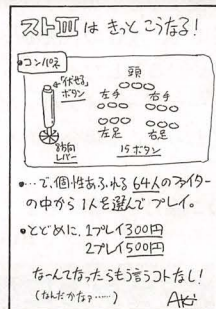 ストⅢ は きっと こうなる!
・コンパネ
「伏せる」
ボタン
8方向
レバー
頭
左手
右手
左足
右足
15ボタン
・…で、個性あふれる 64人のファイター
の中から 1人を選んで プレイ。
・とどめに、1プレイ300円
2プレイ500円
な〜んてなったらもう言うコトなし!
(なんだかなァ……)
AKi